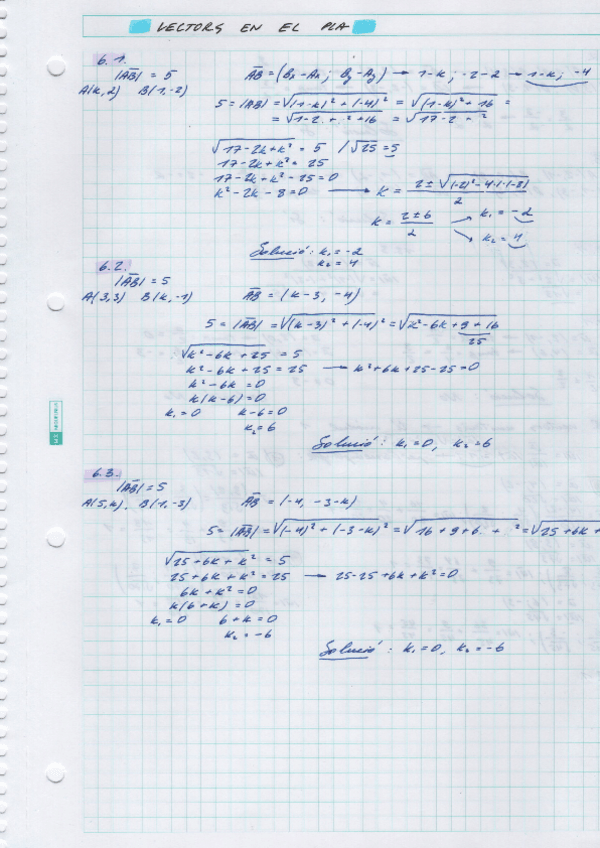 VECTORS EN EL PLA
6.1.
|AB| = 5 AB = (Bx - Ax ; By - Ay) → 1-k ; -2-2 → 1-k ; -4
A(k,2) B(1,-2)
5 = |AB| = √(1-k)² + (-4)² = √(1-k)² + 16 =
= √1-2 . + ² + 16 = √17-2 + ²
√17-2k+k² = 5 /√25 = 5
17-2k+k² = 25
17-2k+k²-25 = 0
k²-2k-8 = 0 → k = 2 ± √(-2)²-4·1·(-8) / 2
k = 2±6 / 2 k₁ = -2
k₂ = 4
Solució: k₁ = -2
k₂ = 4
6.2.
|AB| = 5
A(3,3) B(k,-1) AB = (k-3, -4)
5 = |AB| = √(k-3)² + (-4)² = √k²-6k+9+16
25
√k²-6k+25 = 5
k²-6k+25 = 25 → k²+6k+25-25=0
k²-6k = 0
k(k-6) = 0
k₁ = 0 k-6=0
k₂=6
Solució : k₁=0, k₂=6
6.3.
|AB| = 5
A(5,k), B(1,-3) AB = (-4, -3-k)
5 = |AB| = √(-4)² + (-3-k)² = √16+9+6. + ² = √25+6k+
√25+6k+k² = 5
25+6k+k² = 25 → 25-25+6k+k²=0
6k+k²=0
k(6+k)=0
k₁=0 6+k=0
k₂=-6
Solució : k₁=0, k₂=-6